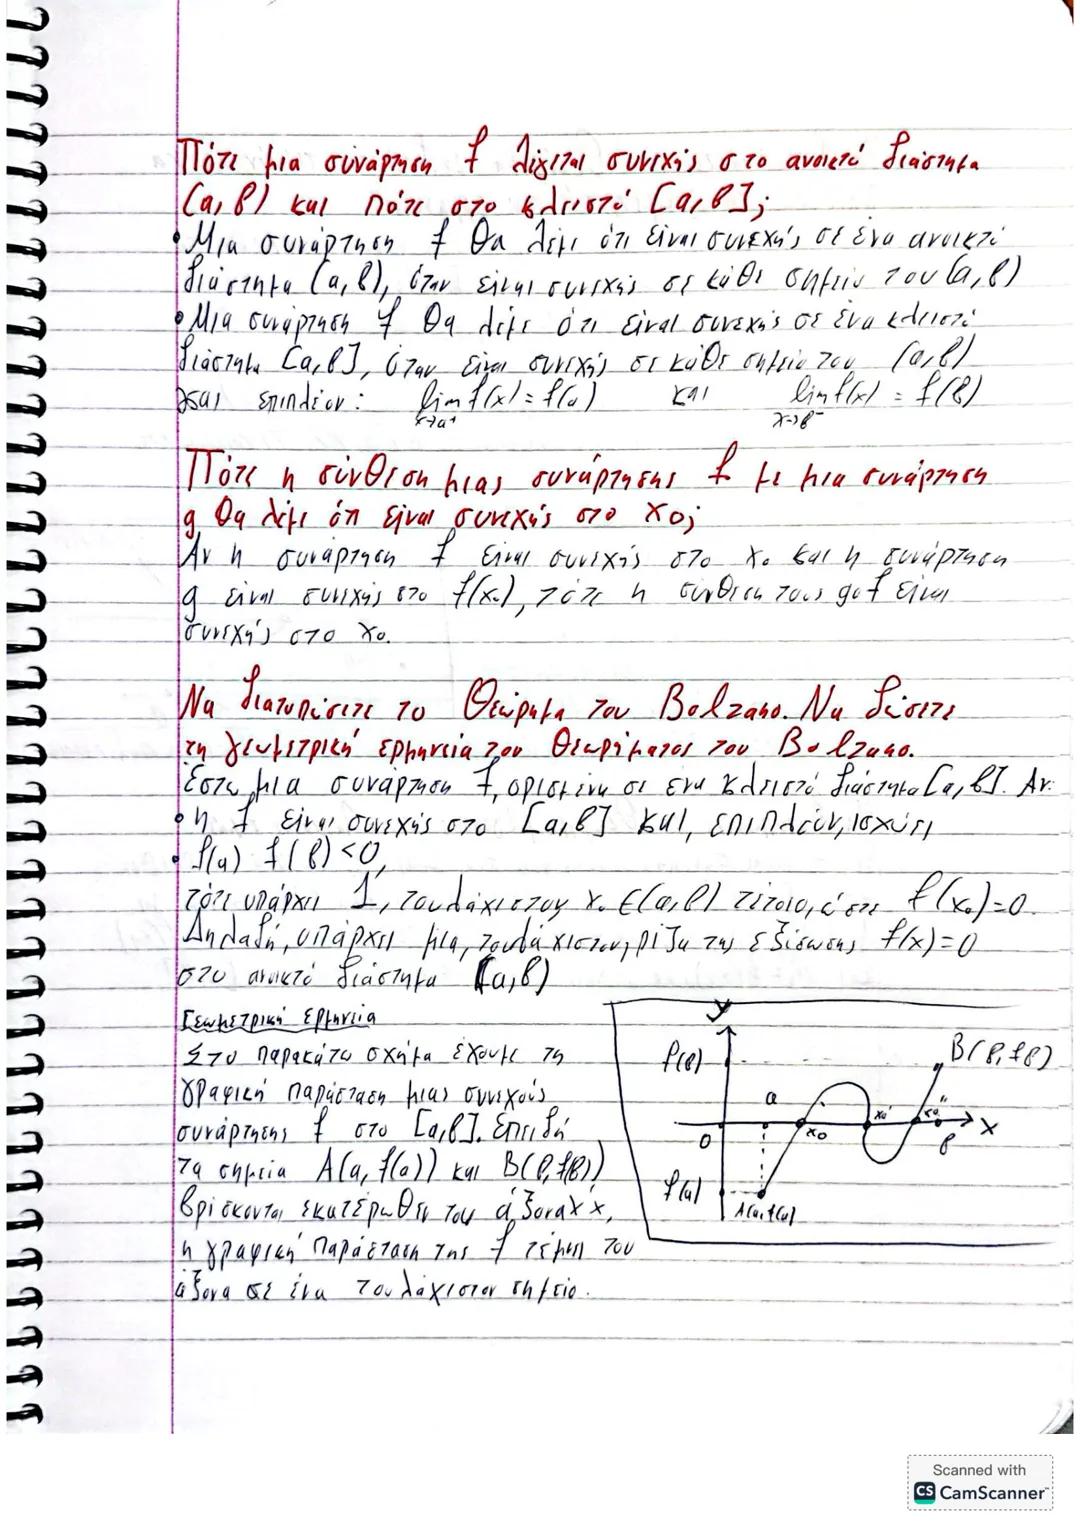 Πότε μια συνάρτηση f λέγεται συνεχής στο ανοικτό διάστημα
(α, β) και πότε στο κλειστό [α, β];
• Μια συνάρτηση f θα λέμε ότι είναι συνεχής σε ένα ανοικτό
διάστημα (α, β), όταν είναι συνεχής σε κάθε σημείο του (α, β)
• Μια συνάρτηση f θα λέμε ότι είναι συνεχής σε ένα κλειστό
διάστημα [α, β], όταν είναι συνεχής σε κάθε σημείο του (α, β)
και επιπλέον: lim f(x) = f(α) και lim f(x) = f(β)
x→α⁺ x→β⁻
Πότε η σύνθεση μιας συνάρτησης f με μια συνάρτηση
g θα λέμε ότι είναι συνεχής στο x₀;
Αν η συνάρτηση f είναι συνεχής στο x₀ και η συνάρτηση
g είναι συνεχής στο f(x₀), τότε η σύνθεση τους gof είναι
συνεχής στο x₀.
Να διατυπώσετε το Θεώρημα του Bolzano. Να δώσετε
τη γεωμετρική ερμηνεία του Θεωρήματος του Bolzano.
Έστω μια συνάρτηση f, ορισμένη σε ένα κλειστό διάστημα [α, β]. Αν:
• η f είναι συνεχής στο [α, β] και, επιπλέον, ισχύει
• f(α) f(β) <0,
τότε υπάρχει 1, τουλάχιστον x₀ ∈ (α, β) τέτοιο, ώστε f(x₀)=0.
Δηλαδή, υπάρχει μια, τουλάχιστον, ρίζα της εξίσωσης f(x)=0
στο ανοικτό διάστημα (α, β)
Γεωμετρική ερμηνεία
Στο παρακάτω σχήμα έχουμε τη
γραφική παράσταση μιας συνεχούς
συνάρτησης f στο [α, β]. Επειδή
τα σημεία A(α, f(α)) και B(β, f(β))
βρίσκονται εκατέρωθεν του άξονα x'x,
η γραφική παράσταση της f τέμνει τον
άξονα σε ένα τουλάχιστον σημείο.
y
f(β)
B(β, fβ)
α
O
x₀
x₀'
x₀''
β
x
f(α)
A(α, f(α))
Scanned with
CS CamScanner